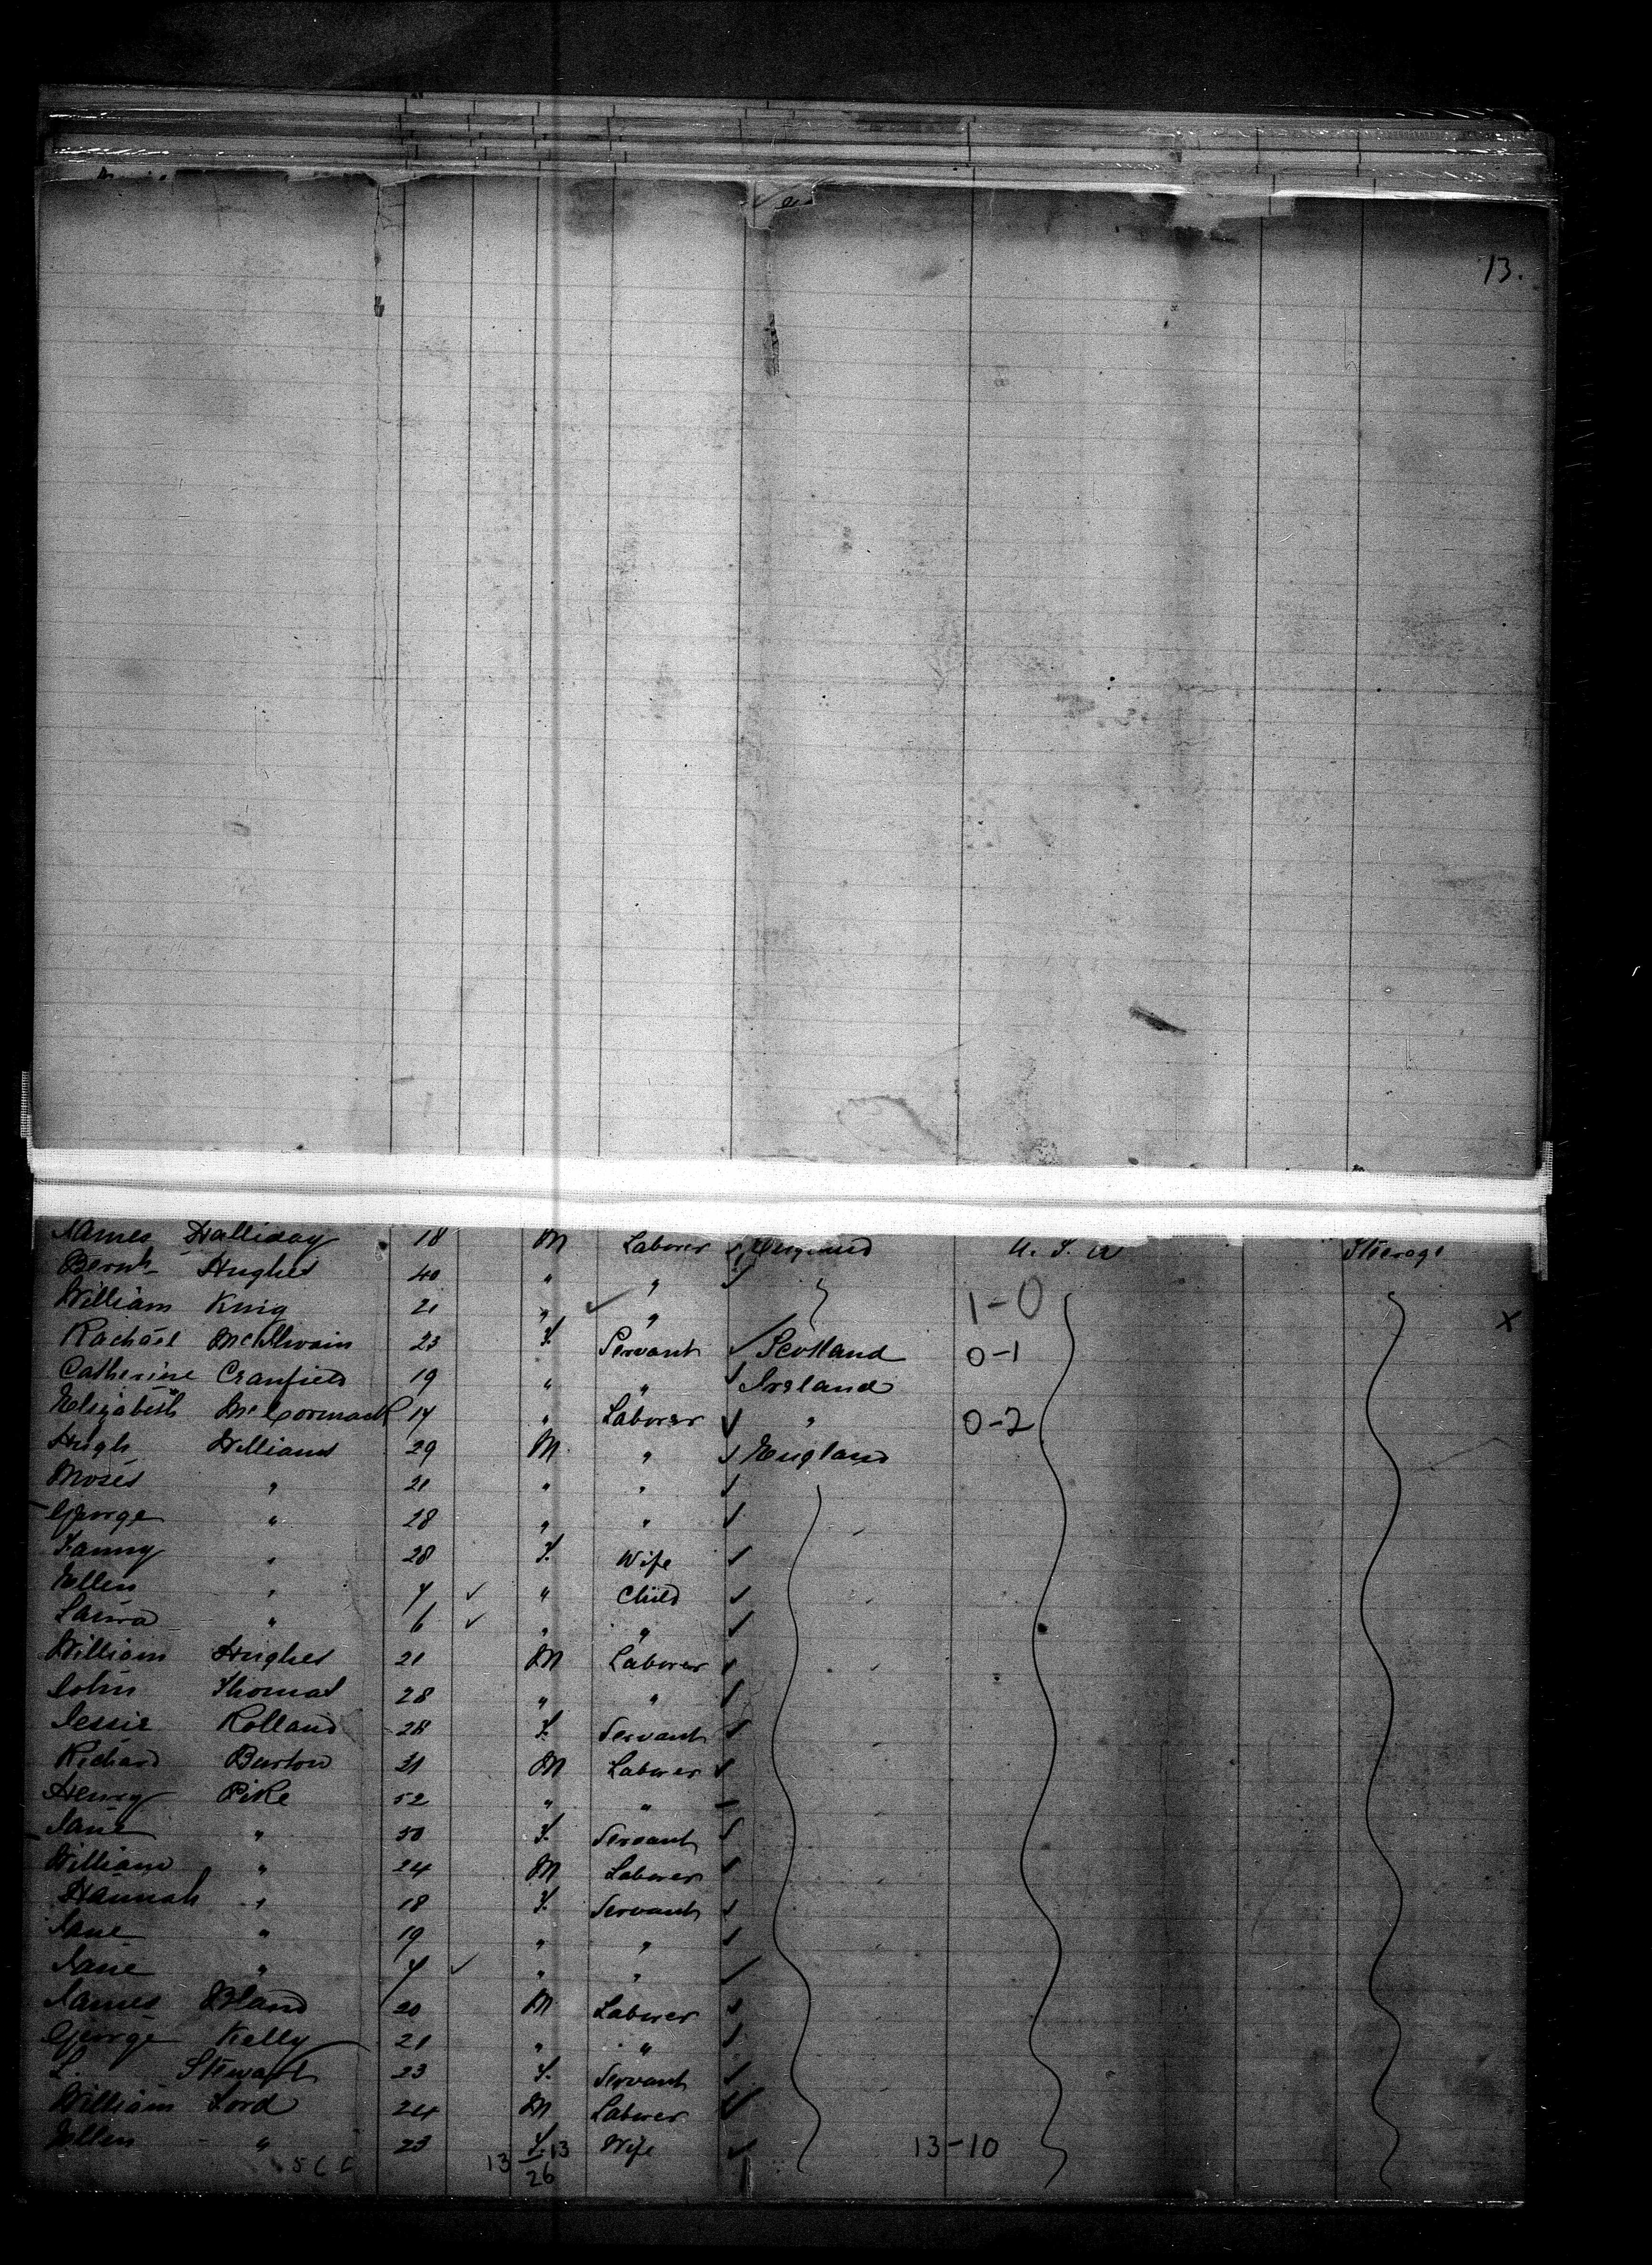 13.
James Halliday 18 M Laborer England U. S. A Steerage
Bernh Hughes 40 " "
William King 21 " " 1-0 X
Rachael McIlwain 23 F. Servant Scotland 0-1
Catherine Cranfield 19 " " Ireland
Elizabeth McCormack 14 " Laborer " 0-2
Hugh Williams 29 M " England
Moses " 21 " "
George " 28 " "
Fanny " 28 F. Wife
Ellen " " Child
Laura " 6 " "
William Hughes 21 M Laborer
John Thomas 28 " "
Jessie Rolland 28 F. Servant
Richard Burton 31 M Laborer
Henry Pike 52 " "
Jane " 50 F. Servant
William " 24 M Laborer
Hannah " 18 F. Servant
Jane " 19 " "
Jane " " "
James Bland 20 M Laborer
George Kelly 21 " "
L. Stewart 23 F. Servant
William Ford 24 M Laborer
Ellen " 23 F. Wife 13-10
13 13
26